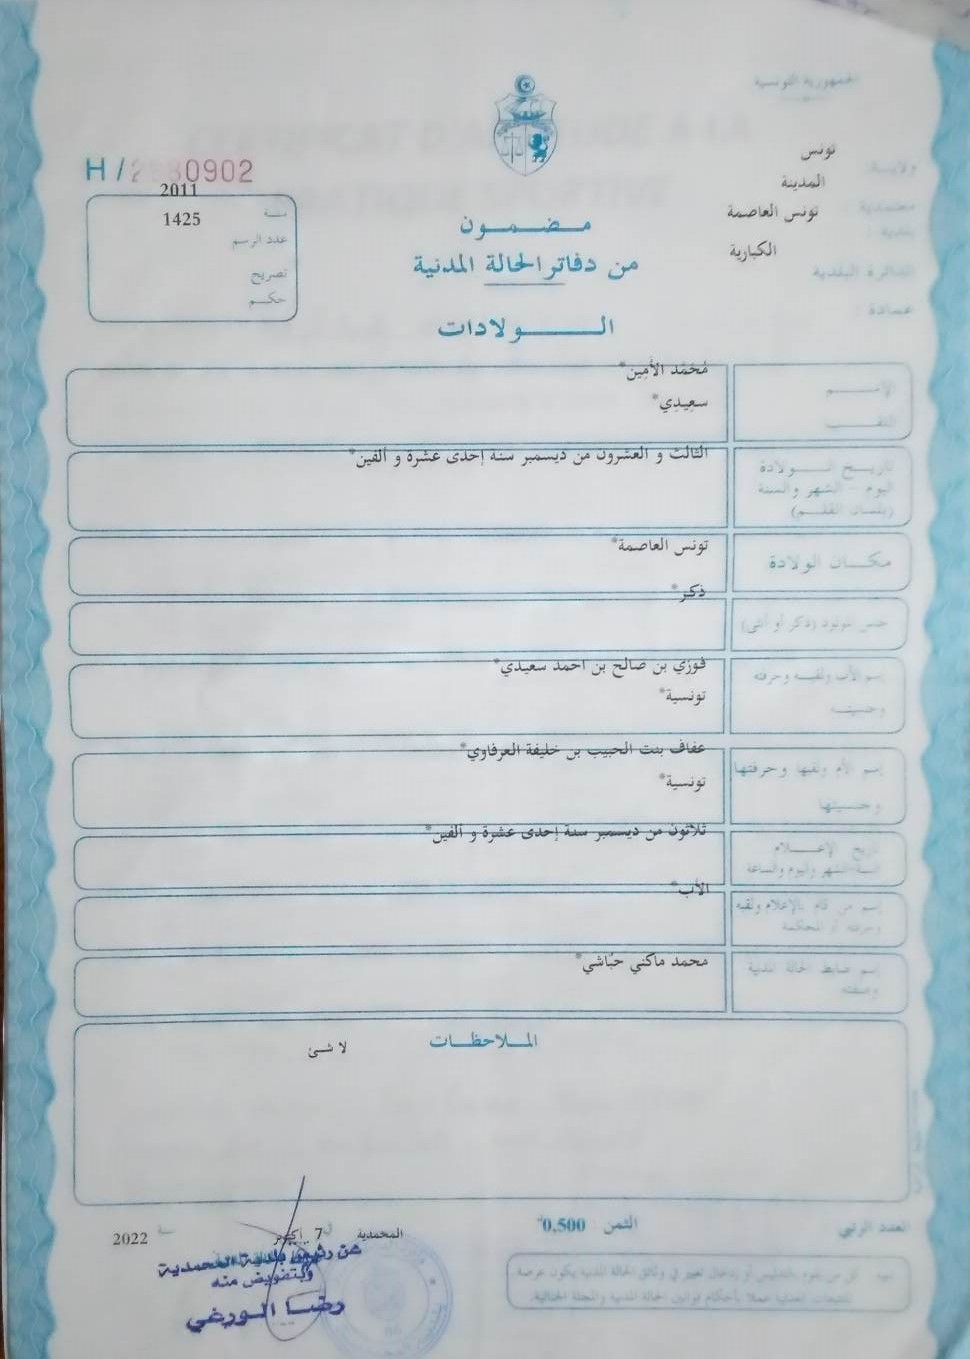 الجمهورية التونسية
ولاية: تونس
معتمدية: المدينة
بلدية: تونس العاصمة
الدائرة البلدية الكبارية
عمادة:
H / 2980902
سنة 2011
عدد الرسم 1425
تصريح
حكم
مضمون
من دفاتر الحالة المدنية
الولادات
الإسم مُحَمّد الأَمِين*
اللقب سعِيدِي*
تاريخ الولادة الثالث و العشرون من ديسمبر سنة إحدى عشرة و ألفين*
اليوم - الشهر والسنة
(بلسان القلم)
مكان الولادة تونس العاصمة*
جنس المولود (ذكر أو أنثى) ذكر*
إسم الأب ولقبه وحرفته فوزي بن صالح بن أحمد سعيدي*
وجنسيته تونسية*
إسم الأم ولقبها وحرفتها عفاف بنت الحبيب بن خليفة العرفاوي*
وجنسيتها تونسية*
تاريخ الإعلام ثلاثون من ديسمبر سنة إحدى عشرة و ألفين*
السنة الشهر واليوم والساعة
إسم من قام بالإعلام ولقبه الأب*
وحرفته أو المحكمة
إسم ضابط الحالة المدنية محمد ماكني حبّاشي*
وصفته
الملاحظات
لا شئ
العدد الرتبي
الثمن: 0,500
المحمدية في 7 أكتوبر سنة 2022
عن رئيس بلدية المحمدية
وبتفويض منه
رضا الورغي
تنبيه: كل من يقوم بالتدليس أو إدخال تغيير في وثائق الحالة المدنية يكون عرضة
للتتبعات العدلية عملا بأحكام قوانين الحالة المدنية والمجلة الجنائية.